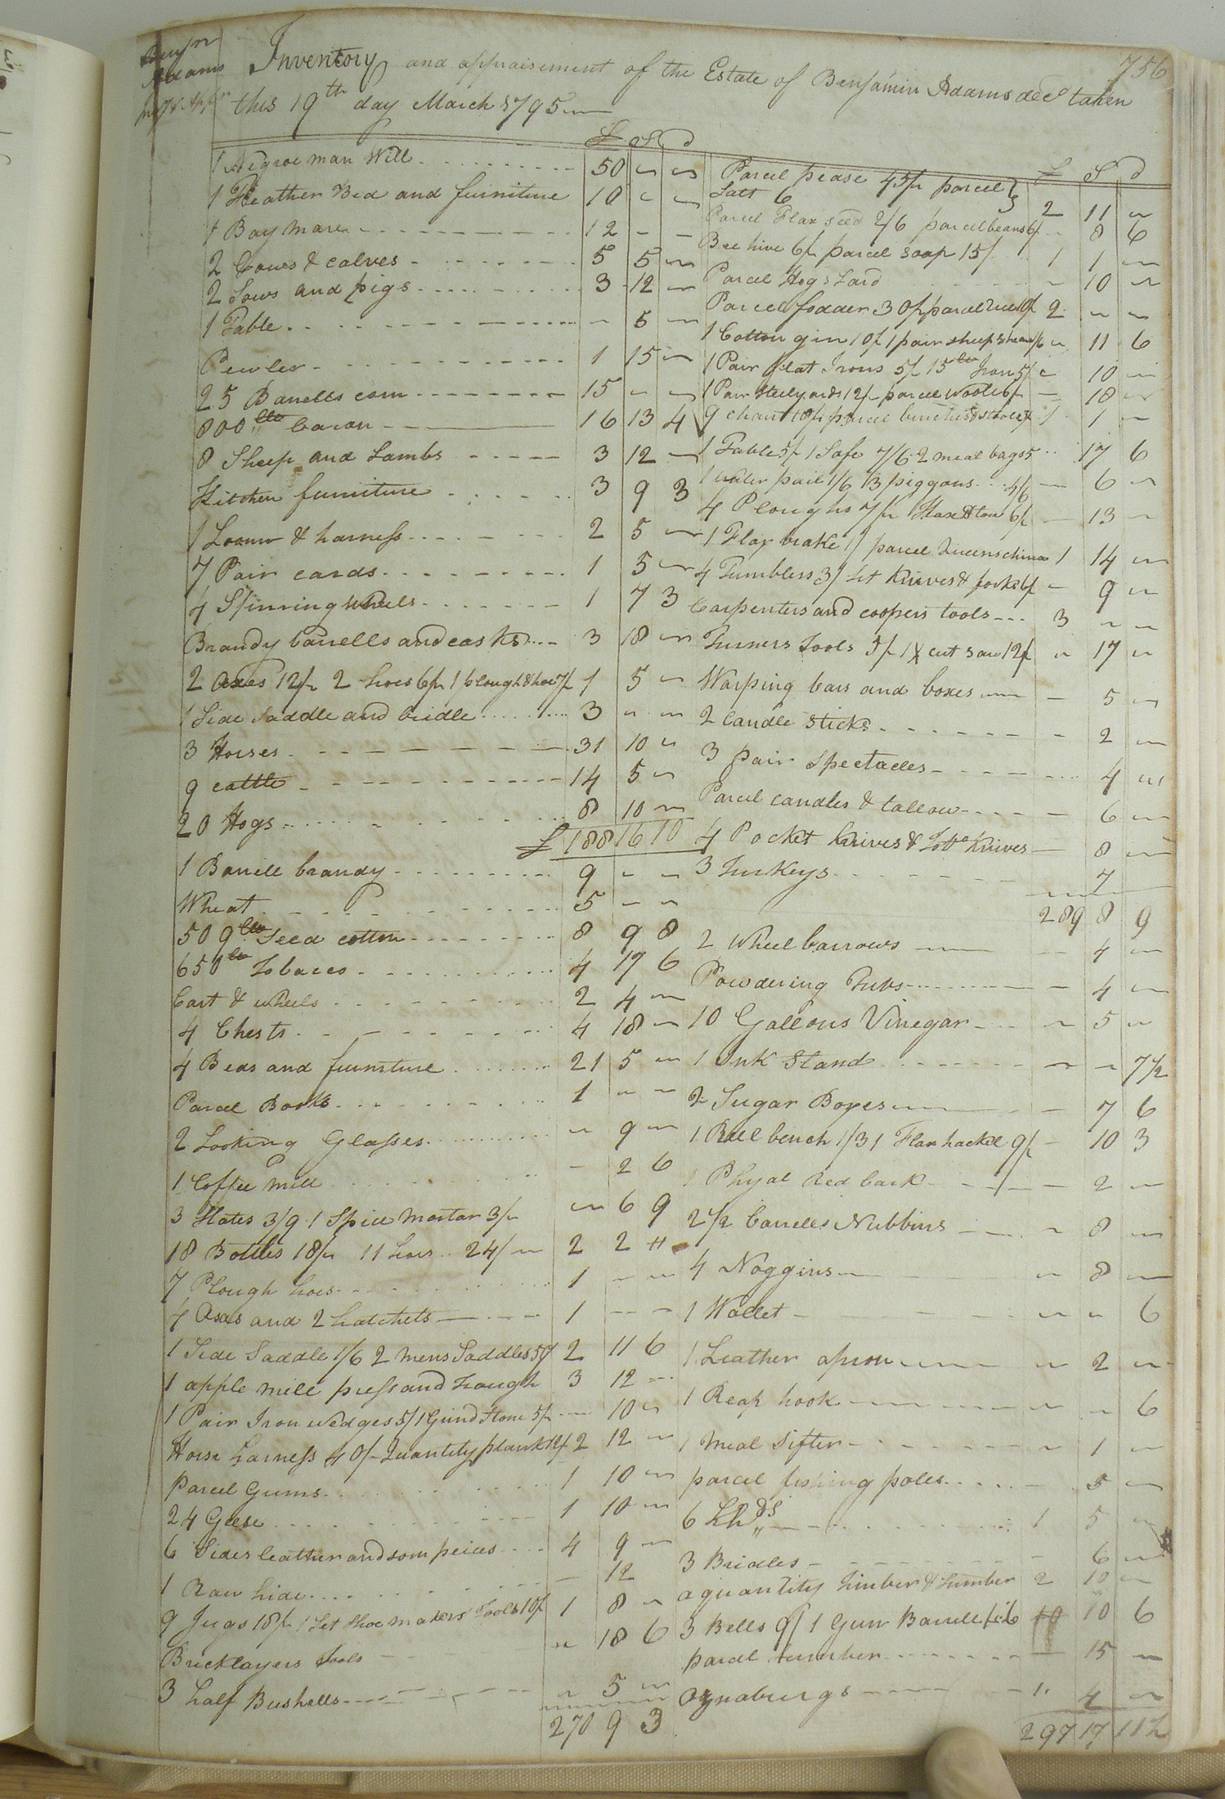 756
Benjn
Adams
Inventory and appraisement of the Estate of Benjamin Adams decd taken
this 19th day March 1795
£ S d
1 Negroe man Will 50 " "
1 Feather Bed and furniture 10 " "
1 Bay Mare 12 - -
2 Cows & calves 5 5 "
2 Sows and pigs 3 12 "
1 Table - 5 "
Pewter 1 15 "
25 Barrells corn 15 " "
800 lbs bacon 16 13 4
8 Sheep and Lambs 3 12 -
Kitchen furniture 3 9 3
1 Loom & harness 2 5 "
7 Pair cards 1 5 "
4 Spinning wheels 1 7 3
Brandy barrells and casks 3 18 "
2 Axes 12/ 2 hoes 6/ 1 plough & hoe 7/ 1 5 "
1 Side Saddle and bridle 3 " "
3 Horses 31 10 "
9 cattle 14 5 "
20 Hogs 8 10 "
£ 188 16 10
1 Barrell brandy 9 " "
Wheat 5 - "
509 lbs Seed cotton 8 9 8
650 lbs Tobacco 4 17 6
Cart & wheels 2 4 "
4 Chests 4 18 "
4 Beds and furniture 21 5 "
Parcel Books 1 " "
2 Looking Glasses " 9 "
1 Coffee mill - 2 6
3 Slates 3/9 1 Spice Mortar 3/ " 6 9
18 Bottles 18/ 11 hoes 24/ 2 2 "
7 Plough hoes 1 " "
4 Axes and 2 hatchets 1 - -
1 Side Saddle 1/6 2 mens Saddles 50/ 2 11 6
1 apple mill press and trough 3 12 -
1 Pair Iron wedges 5/ 1 Grind Stone 5/ - 10 "
Horse harness 40/ Quantity plank 12/ 2 12 "
Parcel Gums 1 10 "
24 Geese 1 10 "
6 Sides leather and som peices 4 9 "
1 Raw hide - 12
9 Jugs 18/ 1 Set Shoemakers Tools 10/ 1 8 "
Bricklayers Tools " 18 6
3 half Bushells " 5 "
270 9 3
£ S d
Parcel pease 45/ parcel
Salt 6 2 11 "
Parcel Flax seed 2/6 parcel beans 6/ 8 6
Bee hive 6/ parcel soap 15/ 1 1 "
Parcel Hogs Lard - 10 "
Parcel fodder 30/ parcel 10/ 2 " "
1 Cotton gin 10/ 1 pair sheep shears 1/6 " 11 6
1 Pair flat Irons 5/ 15 lbs Iron 5/ " 10 "
1 Pair Steelyards 12/ parcel wool 6/ - 18 "
9 chairs 18/ parcel benches & stools 3/ 1 1 "
1 Table 5/ 1 Safe 7/6 2 meal bags 5 17 6
1 water pail 1/6 3 piggons 4/6 - 6 "
4 Ploughs 7/ Flax & tow 6/ - 13 -
1 Flax brake 1/ parcel Queens china 1 14 "
4 Tumblers 3/ Set Knives & forks 6/ - 9 "
Carpenters and coopers tools 3 " "
Turners Tools 5/ 1 X cut saw 12/ " 17 "
Warping bars and boxes - 5 "
2 Candle Sticks - 2 "
3 pair Spectacles 4 "
Parcel candles & tallow - 6 "
4 Pocket Knives & Tobo Knives - 8 "
3 Turkeys 7
289 8 9
2 Wheel barrows - 4 -
Powdering Tubs - 4 "
10 Gallons Vinegar " 5 "
1 Ink Stand " - 7 1/2
2 Sugar Boxes - 7 6
1 Reel bench 1/3 1 Flax hackel 9/ - 10 3
1 Phyal Red bark - 2 "
2 1/2 barrels Nubbins " 8 "
4 Noggins " 8 "
1 Wallet " " 6
1 Leather apron " 2 "
1 Reap hook " " 6
1 Meal Sifter " 1 "
parcel fishing poles - 5 "
6 Hhds 1 5 "
3 Bridles - 6 "
a quantity Timber & Lumber 2 10 "
3 Bells 9/ 1 Gun Barrell 1/6 10 6
parcel lumber - 15 "
Oznaburgs 1 4 "
297 17 11 1/2